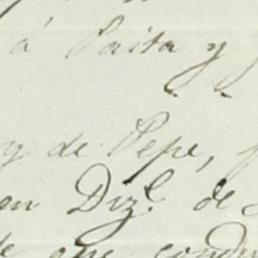 á Paita y
y de Pepe,
en Dizᵉ. de
que condu